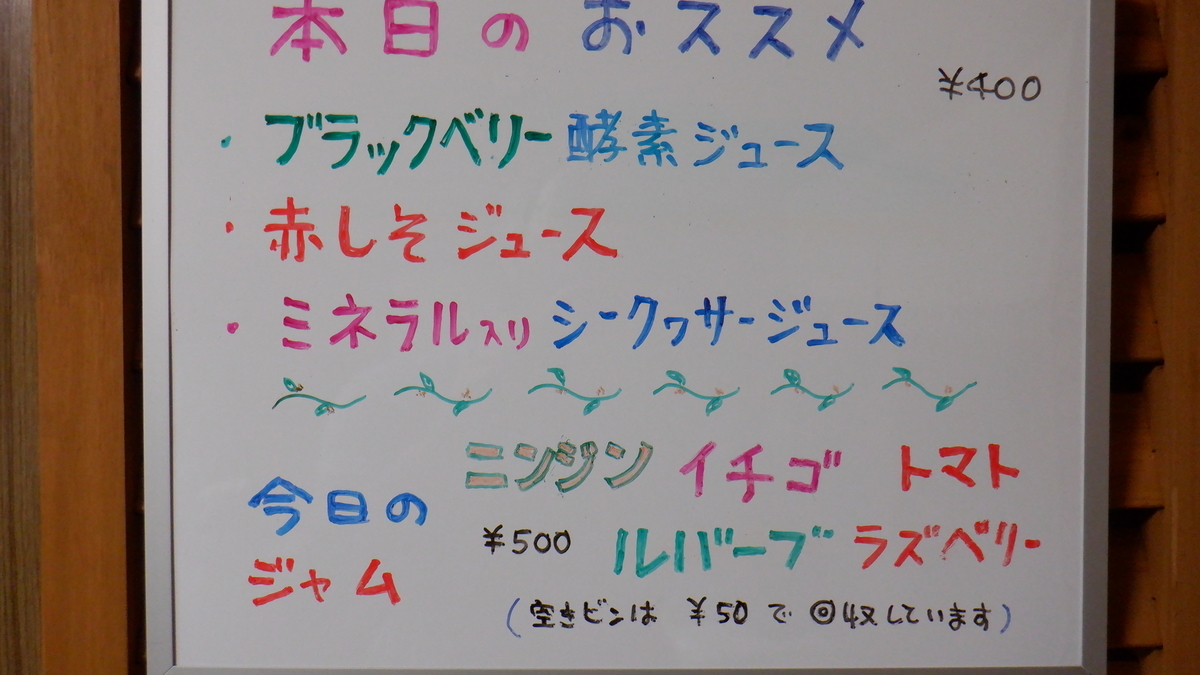 本日の おススメ
¥400
・ブラックベリー酵素ジュース
・赤しそジュース
・ミネラル入りシークヮサージュース
ニンジン イチゴ トマト
今日の
¥500 ルバーブ ラズベリー
ジャム
(空きビンは ¥50で 回収しています)